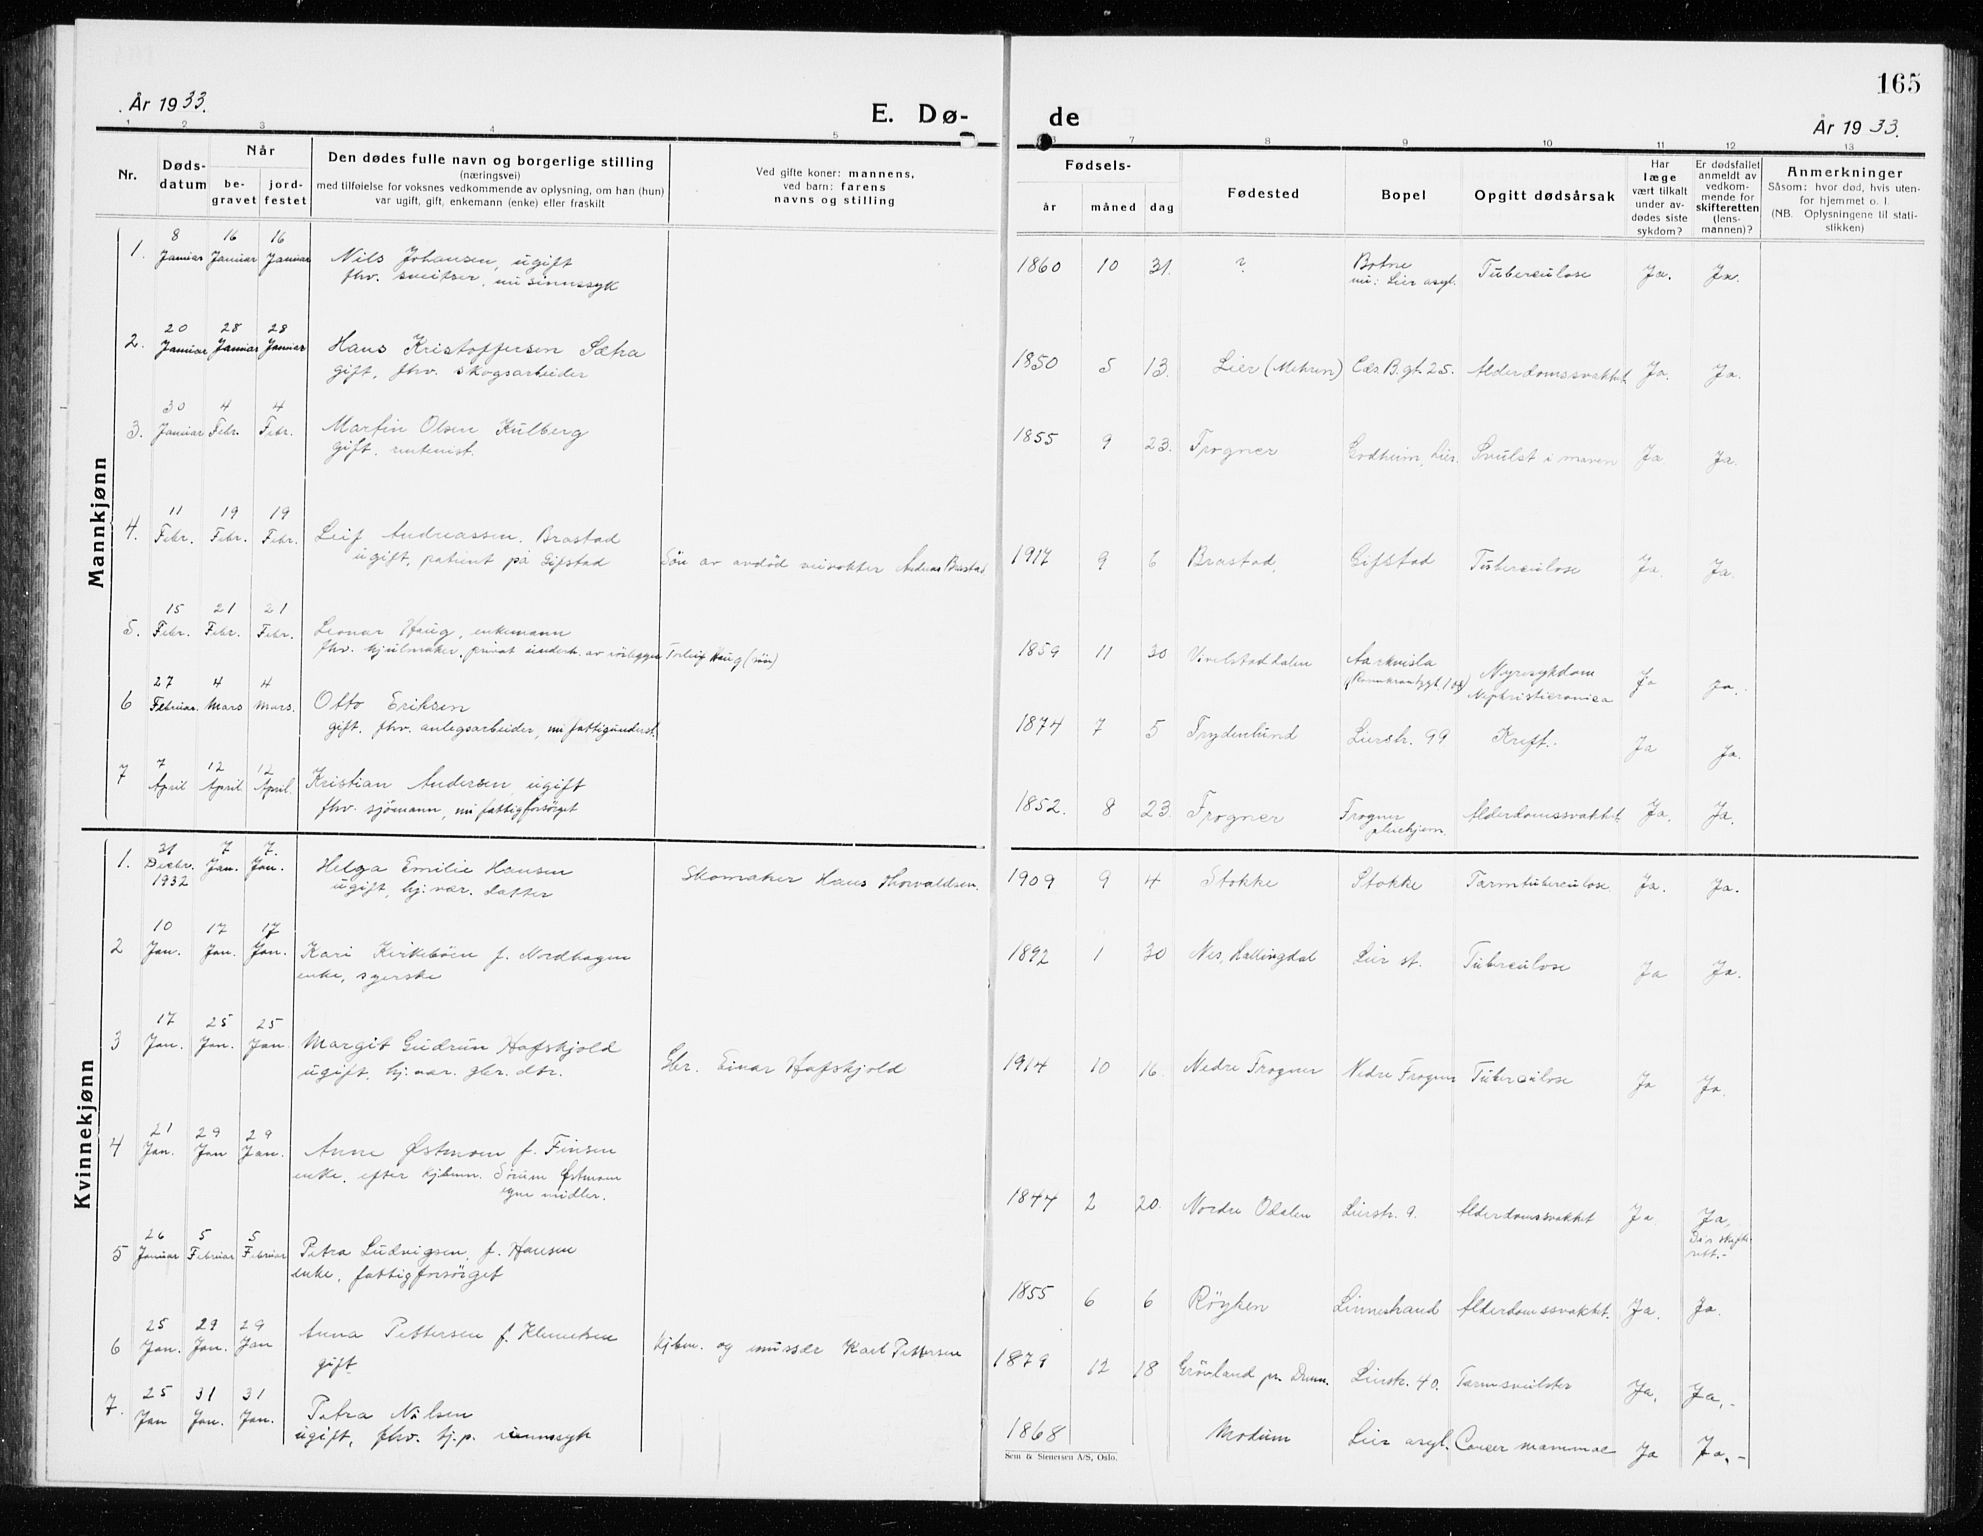 165
År 1933.
E. Dø-
de
År 1933.
1 2 3 4 5 6 7 8 9 10 11 12 13
Nr.
Døds-
datum
Når
be-
gravet
jord-
festet
Den dødes fulle navn og borgerlige stilling
(næringsvei)
med tilføielse for voksnes vedkommende av oplysning, om han (hun)
var ugift, gift, enkemann (enke) eller fraskilt
Ved gifte koner: mannens,
ved barn: farens
navns og stilling
Fødsels-
år måned dag
Fødested
Bopel
Opgitt dødsårsak
Har
læge
vært tilkalt
under av-
dødes siste
sykdom?
Er dødsfallet
anmeldt av
vedkom-
mende for
skifteretten
(lens-
mannen)?
Anmerkninger
Såsom: hvor død, hvis uten-
for hjemmet o. l.
(NB. Oplysningene til stati-
stikken)
Mannkjønn
1. 8 Januar 16 Januar 16 Januar Nils Johansen, ugift 1860 10 31. ? Botne Tuberculose Ja. Ja.
fhv. sveitser, nu sinnssyk nu: Lier asyl.
2. 20 Januar 28 Januar 28 Januar Hans Kristoffersen Sætra 1850 5 13. Lier (Mehren) Cæs. B. gt. 25. Alderdomssvakhet Ja. Ja.
gift, fhv. skogsarbeider
3. 30 Januar 4 Febr. 4 Febr. Martin Olsen Kulberg 1855 9 23. Frogner Godheim, Lier. Svulst i maven Ja Ja.
gift. rentenist.
4. 11 Febr. 19 Febr. 19 Febr. Leif Andreassen Brastad Søn av avdød veivokter Andreas Brastad 1917 9 6 Brastad. Gifstad Tuberculose Ja. Ja.
ugift, patient på Gifstad
5. 15 Febr. 21 Febr. 21 Febr. Leonar Haug, enkemann 1859 11 30 Vivelstaddalen Aarkvisla Nyresykdom Ja Ja.
fhv. hjulmaker, privat underh. av rørlegger Torleif Haug (søn) Nephristicronica
6 27 Februar 4 Mars 4 Mars. Otto Eriksen 1874 7 5 Frydenlund Lierstr. 99 Kreft. Ja Ja.
gift. fhv. anlegsarbeider, nu fattigunderst.
7 7 April 12 April 12 April. Kristian Andersen, ugift 1852. 8 23. Frogner Frogner Alderdomssvakhet. Ja. Ja.
fhv. sjømann, nu fattigforsørget pleiehjem.
Kvinnekjønn
1. 31 Decbr. 1932 7 Jan. 7. Jan. Helga Emilie Hansen Skomaker Hans Thorvaldsen. 1909 9 4 Stokke Stokke Tarmtuberculose Ja. Ja.
ugift, hj.vær. datter
2 10 Jan. 17 Jan. 17 Jan. Kari Kirkebøen f. Nordhagen 1892 1 30 Nes, Hallingdal Lier st. Tuberculose Ja Ja.
enke, syerske
3 17 Jan. 25 Jan. 25 Jan. Margit Gudrun Hafskjold Gbr. Einar Hafskjold 1914 10 16. Nedre Frogner Nedre Frogner Tuberculose Ja Ja.
ugift, hj.vær. gbr. dtr.
4 21 Jan. 29 Jan 29 Jan. Anne Østmoen f. Finsen 1844 2 20. Nordre Odalen Lierstr. 9. Alderdomssvakhet Ja. Ja,
enke. efter kjøbmn. Sørum Østmoen
egne midler.
5 26 Januar 5 Februar 5 Februar Petra Ludvigsen, f. Hansen 1855 6 6 Røyken Linnestrand Alderdomssvakhet. Ja. Ja.
enke, fattigforsørget
6 25 Jan. 29 Jan. 29 Jan Anna Pettersen f. Klemetsen Kjbm. og Karl Pettersen 1879 12 18 Grønland pr. Dramn. Lierstr. 40. Tarmsvulster Ja. Ja.-
gift
7. 25 Jan 31 Jan. 31 Jan. Petra Nilsen 1868 Modum Lier asyl. Cancer mammae Ja Ja.-
ugift, fhv. hj.p. sinnssyk
Sem & Stenersen A/S, Oslo.